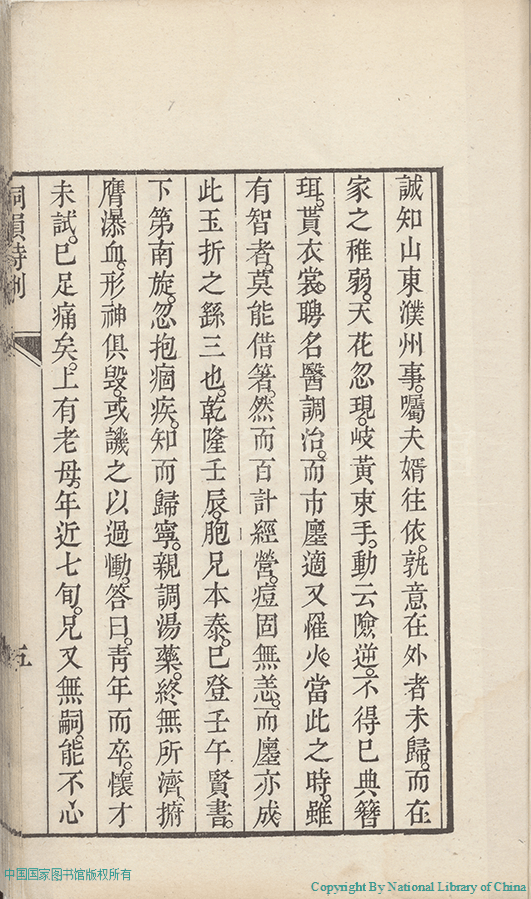 誠知山東濮州事。囑夫婿往依。孰意在外者未歸。而在
家之稚弱。天花忽現。岐黃束手。動云險逆。不得已典簪
珥。貰衣裳。聘名醫調治。而市廛適又罹火。當此之時。雖
有智者。莫能借箸。然而百計經營。痘固無恙。而廛亦成
此玉折之繇三也。乾隆壬辰。胞兄本泰。已登壬午賢書。
下第南旋。忽抱痼疾。知而歸寧。親調湯藥。終無所濟。擗
膺瀑血。形神俱毀。或譏之以過慟。答曰。靑年而卒。懷才
未試。已足痛矣。上有老母。年近七旬。兄又無嗣。能不心
五
中国国家图书馆版权所有
Copyright By National Library of China